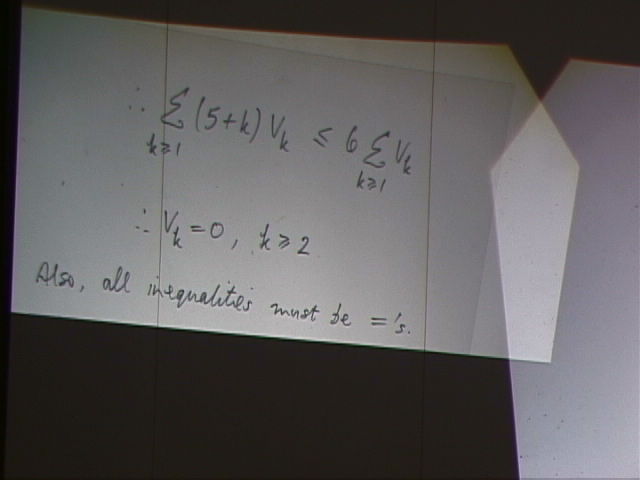 ∴ ∑_{k≥1} (5+k) V_k ≤ 6 ∑_{k≥1} V_k
∴ V_k = 0, k ≥ 2
Also, all inequalities must be ='s.